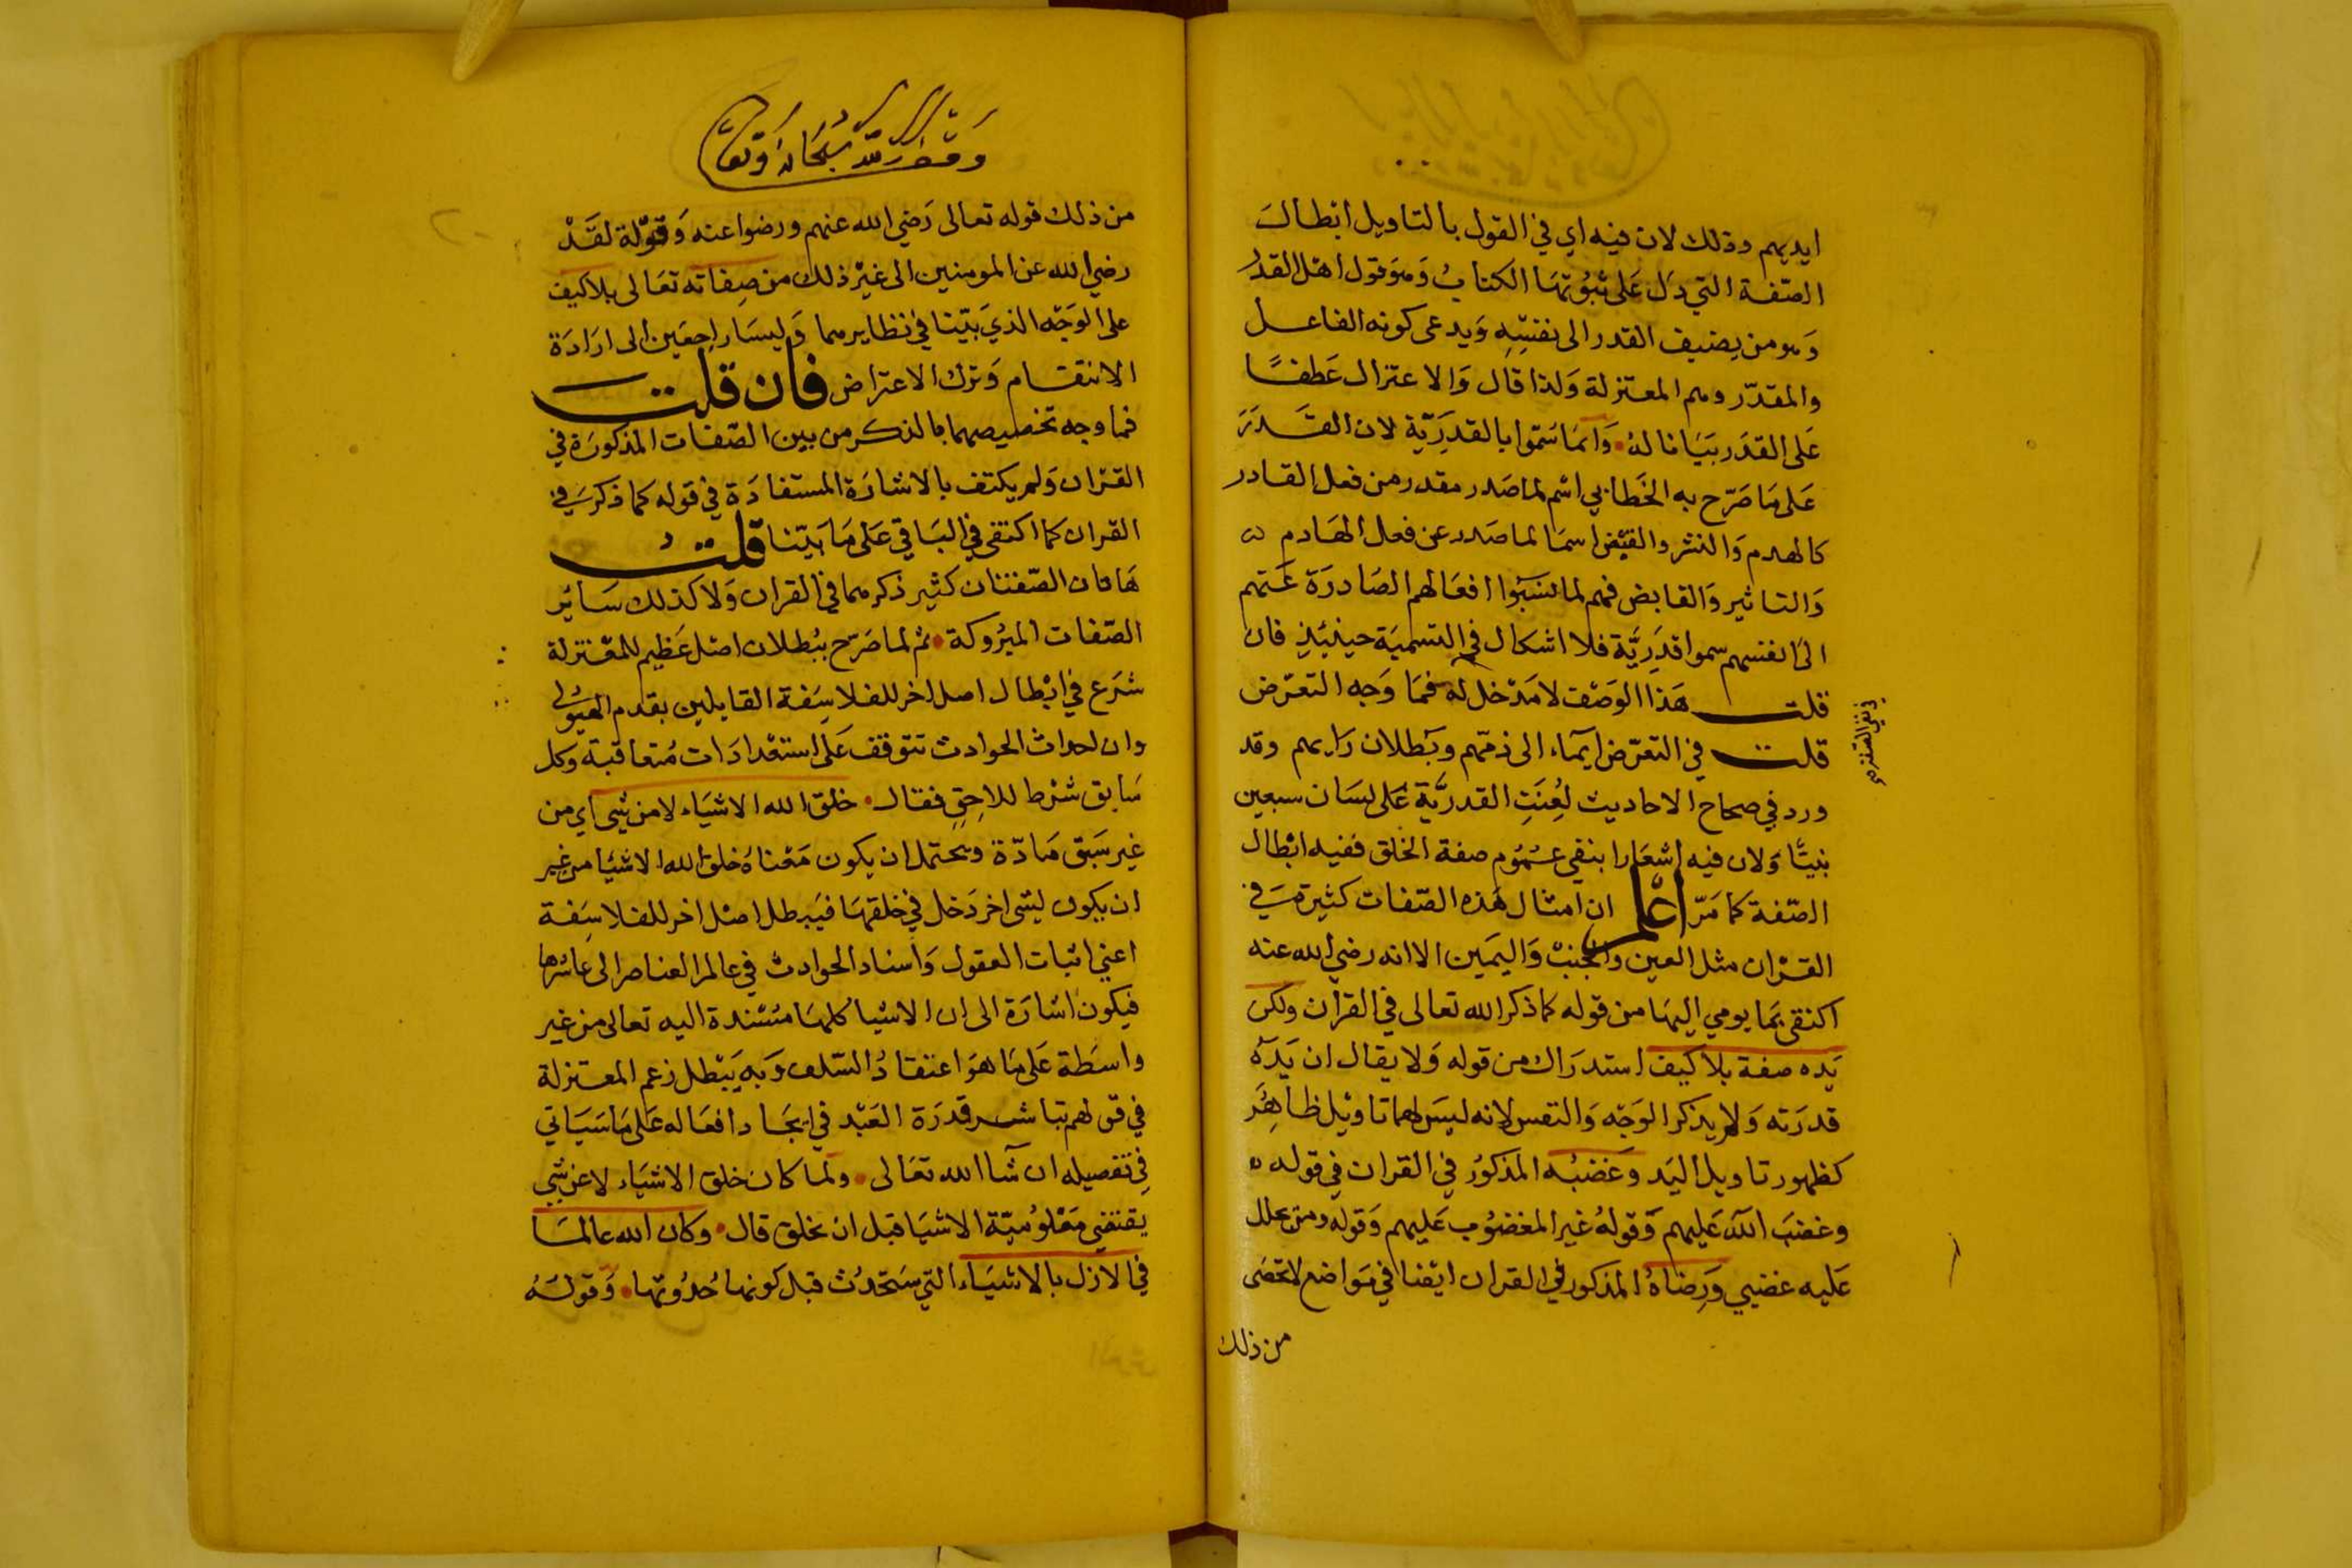 ايديهم وذلك لان فيه اي في القول بالتاويل ابطال
الصّفة التي دَل عَلى ثبُوتهَا الكتابُ وَهوَ قول اهل القدر
وَهو من يضيف القدر الى نفسِهِ وَيدعى كونه الفاعل
والمقدّر وهم المعتزلة وَلذا قال وَالاعتزال عَطفًا
عَلى القدَر بيَانا لهُ وَانمَا سَمّوا بالقدَرِيّة لان القَدَرَ
عَلى مَا صَرّح به الخَطابي اسْم لما صَدر مقدر من فعل القادر
كالهدم وَالنشر والقبْض اسمَا لما صَدر عن فعل الهَادم
وَالتاثير وَالقابض فهم لما نسَبُوا افعَالهم الصَادرَة عَنهم
الى انفسهم سموا قدَرِيَّة فلا اشكال في التسميَة حينَئِذٍ فان
قلت هَذا الوَصْف لا مَدْخل له فمَا وَجه التعرّض
في نفي الصّفة صح
قلت في التعرّض ايمَاء الى ذمّهم وبُطلان رَايهم وقد
ورد في صحاح الاحاديث لُعِنَتِ القدريَّة عَلى لسَان سبعين
نبيًّا وَلان فيه اشعَارا بنفي عمُوم صفة الخلق ففيه ابْطال
الصّفة كما مَرّ اعْلم ان امثال هَذه الصّفات كثيرة في
القرْان مثل العين وَالجنبْ وَاليَمين الا انه رضي الله عنه
اكتفى بمَا يومي اليهَا من قوله كما ذكر الله تعالى في القرآن ولكن
يَده صفة بلا كيف استدرَاك من قوله وَلا يقال ان يَدَهُ
قدرَته وَلم يذكر الوَجْه وَالنفس لانه ليسَ لهما تاويْل ظاهِر
كظهور تاويل اليَد وغَضبُه المذكورُ في القرآن في قوله
وغضبَ اللّه عَليهم وَقولهُ غير المغضُوب عَليهم وَقوله ومن يحلل
عَليه غضبي وَرِضاهُ المذكور في القرآن ايْضا في مَواضع لا تحصَى
من ذلك
من ذلك قوله تعالى رَضي الله عنهم ورضوا عنه وَقوْله لقَدْ
رضي الله عن المومنين الى غيْر ذلك من صِفاته تعَالى بلا كيف
على الوَجْه الذي بَيّنا في نظايرهما وَليسَا راجعَين الى ارَادَة
الانتقام وَترك الاعتراض فان قلت
فما وجه تخصيصهما بالذكر من بين الصّفات المذكورَة في
القرْان وَلم يكتف بالاشارَة المستفادَة في قوله كما ذكرَ في
القران كما اكتفى في البَاقي عَلى مَا بَيّنا قلت
هَاتان الصّفتان كثير ذكرهما في القران وَلا كذلك سَائر
الصّفات المتروكة ثم لما صَرّح ببُطلان اصْل عَظيم للمعْتزلة
شرَع في ابْطال اصل اخر للفلاسِفة القايلين بقدم الهيُولى
وان احداث الحوادث تتوقف عَلى استعْدادَات مُتعاقبَة وكل
سَابق شرط للاحِق فقال خلق الله الاشيَاء لا من شئ اي من
غير سَبق مَادّة ويحتمل ان يكون مَعْناهُ خلق الله الاشيَا من غير
ان يكون لشئ اخر دَخل في خلقهَا فيبطل اصْل اخر للفلاسِفة
اعني اثبات العقول وَاسناد الحوادث في عالم العناصر الى عاشرها
فيكون اشارَة الى ان الاشيا كلهَا مُسْتندة اليه تعالى من غير
واسطة عَلى مَا هوَ اعتقادُ السّلف وَبه يَبْطل زعم المعتزلة
في قولهم بتاثير قدرَة العَبْد في ايجاد افعَاله عَلى مَا سَيَاتي
في تفصيله ان شآ الله تعَالى ولما كان خلق الاشيَاء لا عن شئ
يقتضي مَعْلوُميّة الاشيَا قبل ان يخلق قال وكان الله عالمَا
في الازل بالاشيَاء التي سَتحْدُث قبل كونها حُدُوثها وَقولهُ